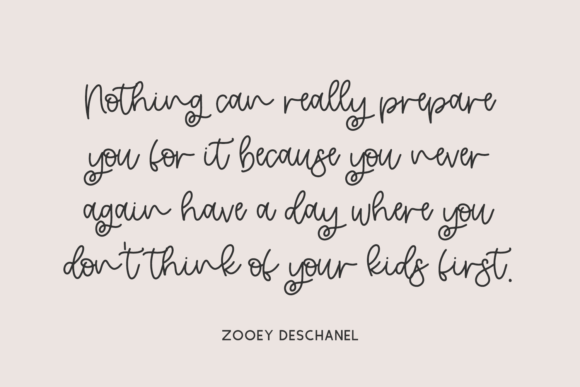 Nothing can really prepare
you for it because you never
again have a day where you
don't think of your kids first.
ZOOEY DESCHANEL